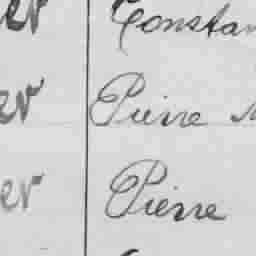 er Constan
er Pierre
er Pierre